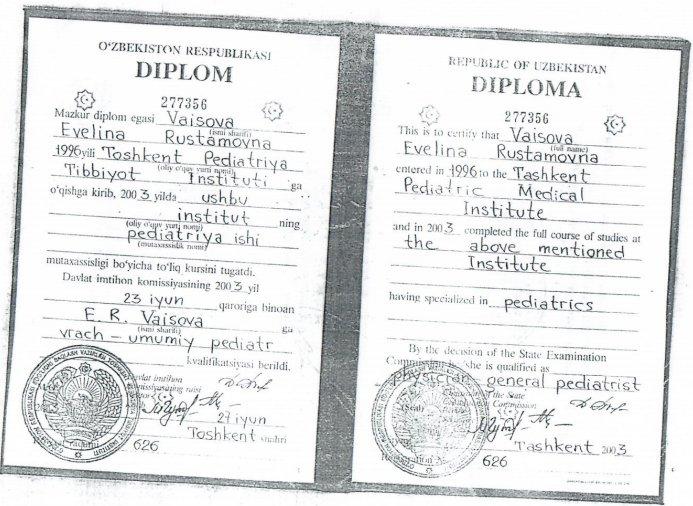 O‘ZBEKISTON RESPUBLIKASI
DIPLOM
277356
Mazkur diplom egasi Vaisova
(ismi sharifi)
Evelina Rustamovna
1996 yili Toshkent Pediatriya
(oliy o‘quv yurti nomi)
Tibbiyot Instituti ga
o‘qishga kirib, 2003 yilda ushbu
institut ning
(oliy o‘quv yurti nomi)
pediatriya ishi
(mutaxassislik nomi)
mutaxassisligi bo‘yicha to‘liq kursini tugatdi.
Davlat imtihon komissiyasining 2003 yil
23 iyun qaroriga binoan
E. R. Vaisova ga
(ismi sharifi)
vrach – umumiy pediatr
kvalifikatsiyasi berildi.
Davlat imtihon
komissiyasining raisi
27 iyun
Toshkent shahri
626
REPUBLIC OF UZBEKISTAN
DIPLOMA
277356
This is to certify that Vaisova
(full name)
Evelina Rustamovna
entered in 1996 to the Tashkent
Pediatric Medical
Institute
and in 2003 completed the full course of studies at
the above mentioned
Institute
having specialized in pediatrics
By the decision of the State Examination
Commission she is qualified as
physician general pediatrist
Chairman of the State
Examination Commission
(Seal)
Tashkent 2003
Registration № 626